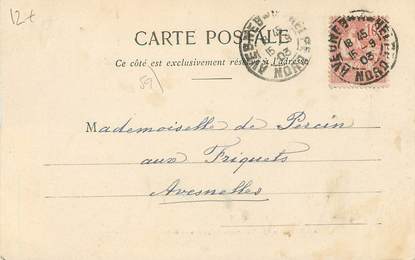 12+
CARTE POSTALE
Ce côté est exclusivement réservé à l'adresse
59
Mademoiselle de Percin
aux Friquets
Avesnelles